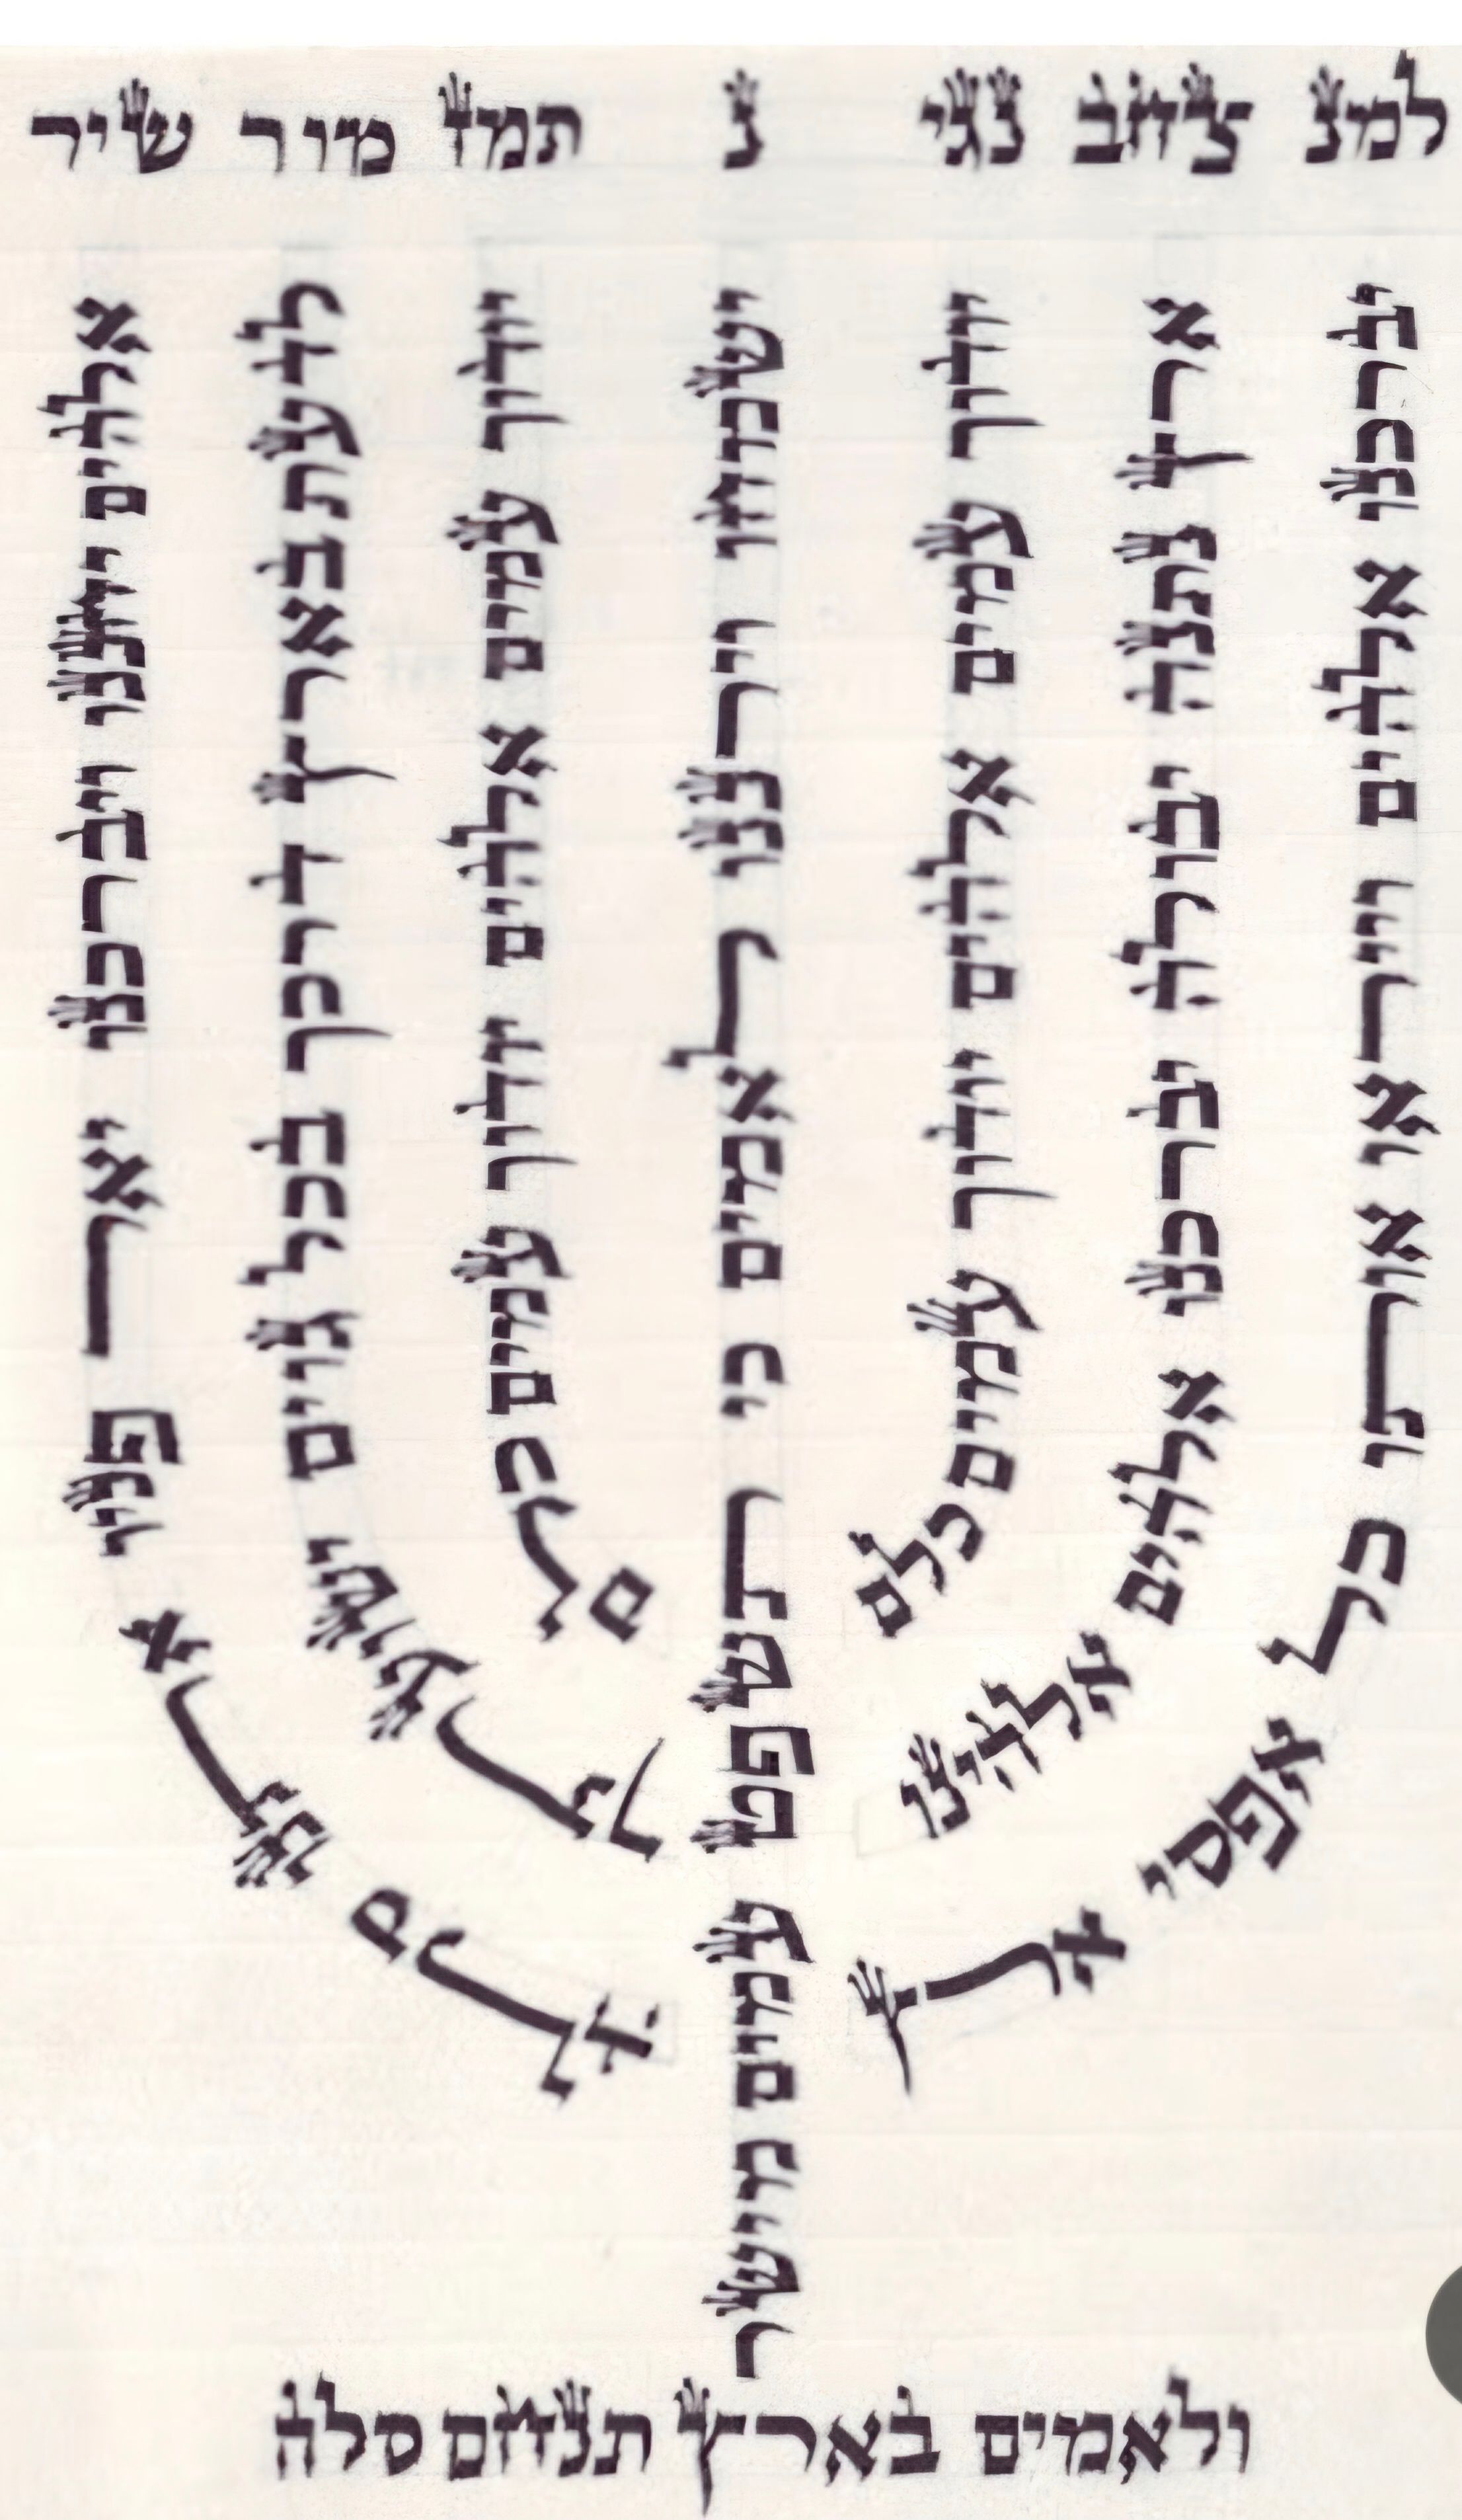 למנ צחב נגי נ תמז מור שיר
אלהים יחננו ויברכנו יאר פניו אתנו סלה
לדעת בארץ דרכך בכל גוים ישועתך
יודוך עמים אלהים יודוך עמים כלם
ישמחו וירננו לאמים כי תשפט עמים מישר
יודוך עמים אלהים יודוך עמים כלם
ארץ נתנה יבולה יברכנו אלהים אלהינו
יברכנו אלהים וייראו אותו כל אפסי ארץ
ולאמים בארץ תנחם סלה